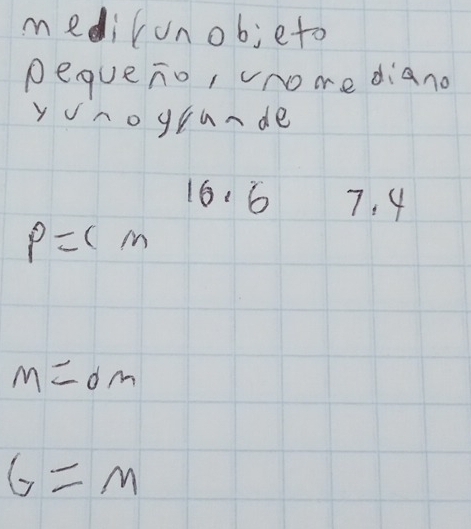 medir un objeto
pequeño, uno mediano
y uno grande
16.6 7.4
P = cm
M = dm
G = M